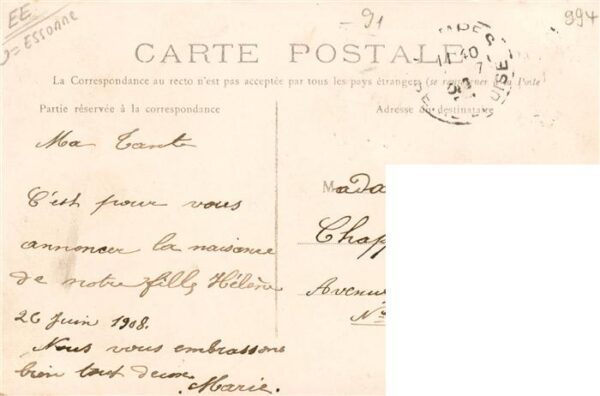 EE
= ESSONNE
-91
994
CARTE POSTALE
La Correspondance au recto n'est pas acceptée par tous les pays étrangers (se renseigner à la Poste
Partie réservée à la correspondance
Adresse du destinataire
Ma Tante
C'est pour vous
annoncer la naisance
de notre fille Hélène
26 Juin 1908.
Nous vous embrassons
bien tout deux
Marie.
Mada
Chap
Avenu
N